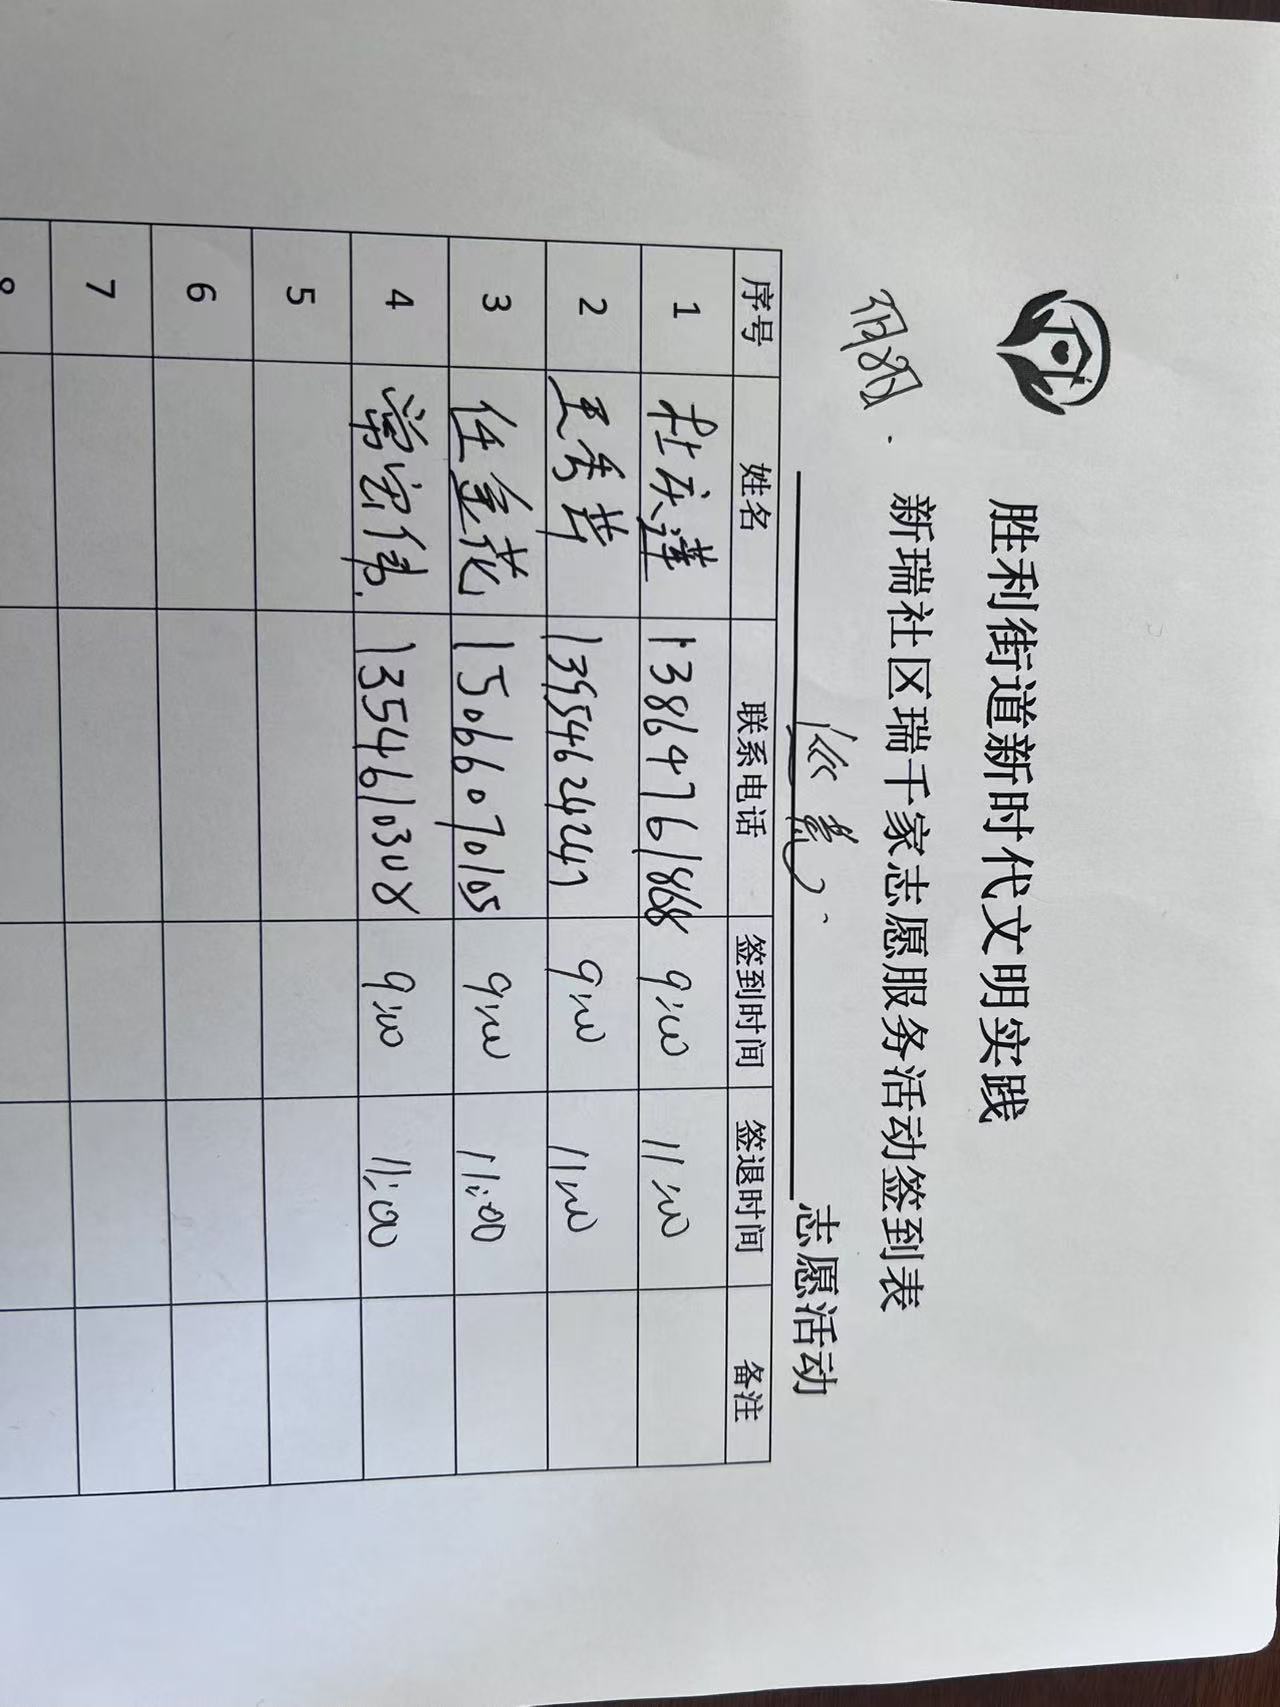 胜利街道新时代文明实践
新瑞社区瑞千家志愿服务活动签到表
志愿活动
序号 姓名 联系电话 签到时间 签退时间 备注
1 杜庆莲 13864761868 9:00 11:00
2 王秀芹 13954624247 9:00 11:00
3 任金花 15066070105 9:00 11:00
4 常宏伟 1354610308 9:00 11:00
5
6
7
8